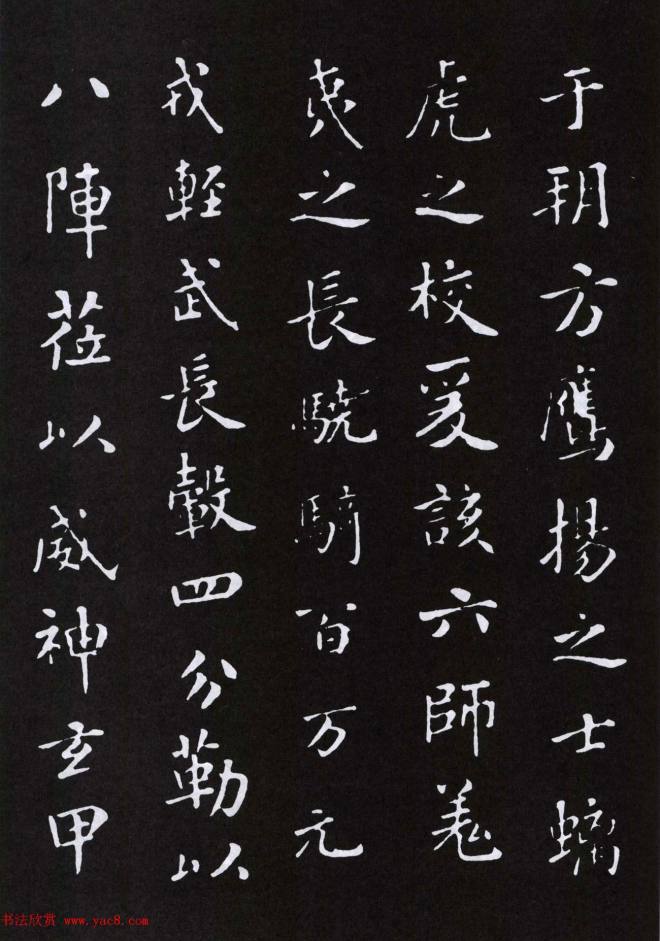 于朔方鷹揚之士螭
虎之校爰該六師羌
夷之長驍騎百万元
戎輕武長轂四分勒以
八陣莅以威神玄甲
书法欣赏 www.yac8.com